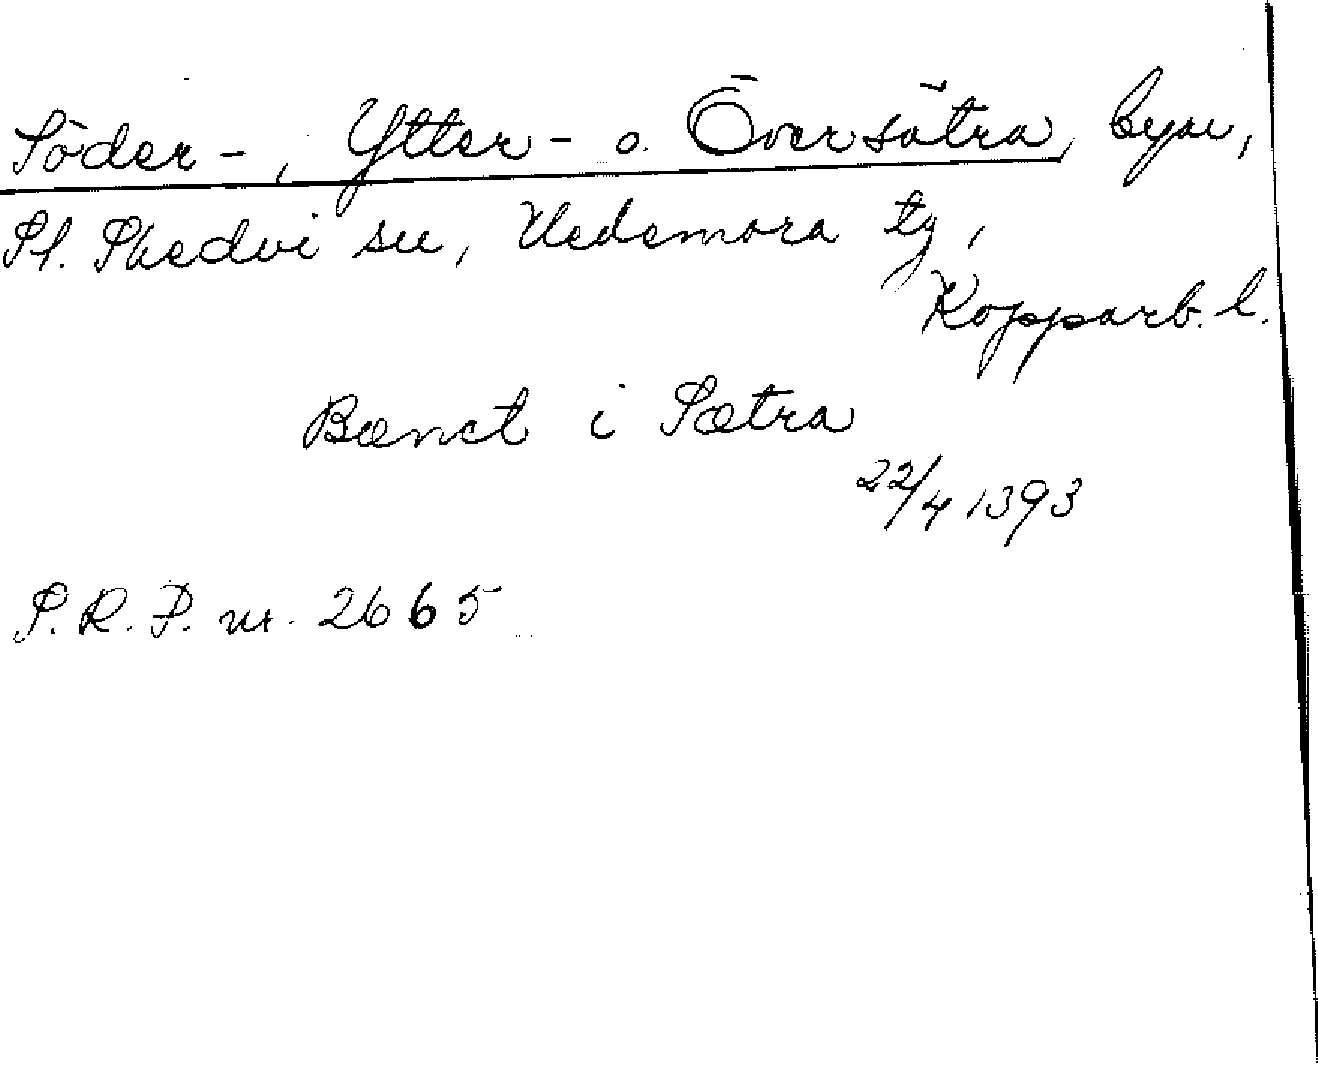 Söder-, Ytter- o. Översätra, byar,
St. Skedvi sn, Hedemora tg,
Kopparb. l.
Bænct i Sætra
22/4 1393
S.R.P. nr. 2665